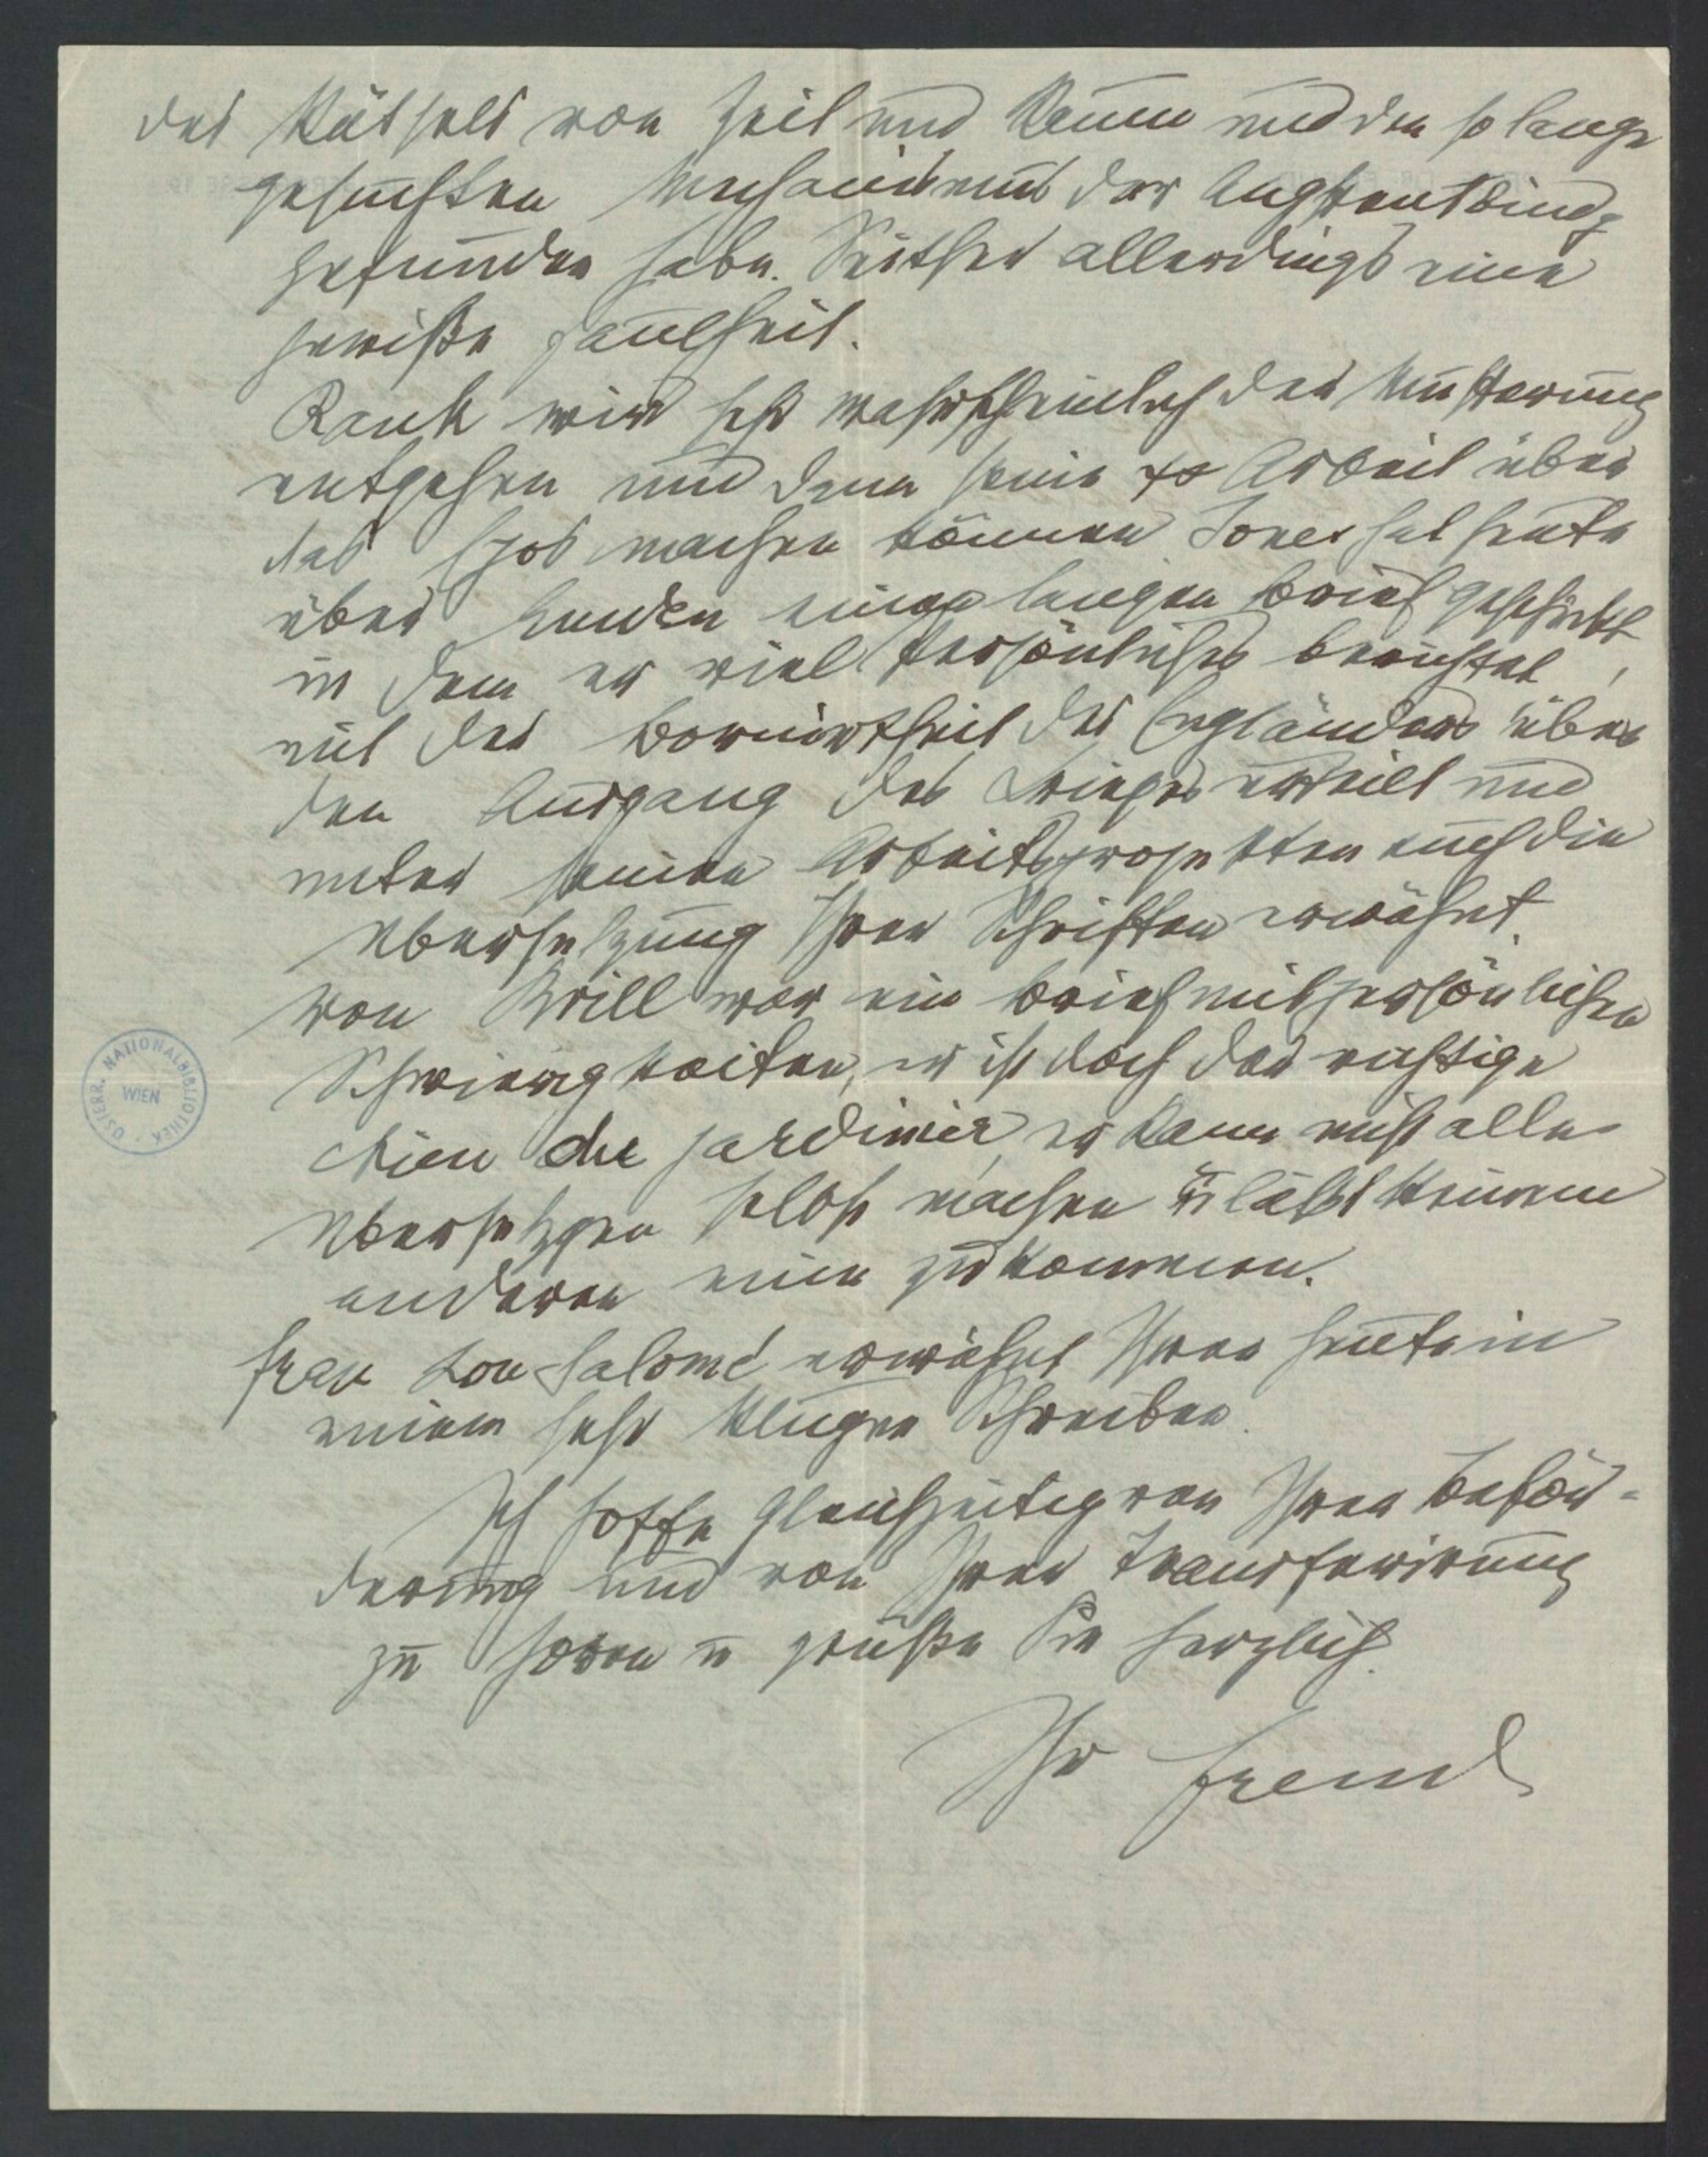 des Rätsels von Zeit und Raum und den so lange
gesuchten Mechanismus der Angstentbindg
gefunden habe. Seither allerdings eine
gewiße Faulheit.
Rank wird sehr wahrscheinlich der Musterung
entgehen und dann seine Arbeit über
das Epos machen können. Jones hat heute
über Emden einen langen Brief geschickt,
in dem er viel Persönliches berichtet,
mit der Borniertheit des Engländers über
den Ausgang des Krieges urtheilt und
unter seinen Arbeitsprojekten auch die
Übersetzung Ihrer Schriften erwähnt.
Von Brill war ein Brief mit persönlichen
Schwierigkeiten, er ist doch der richtige
chien du jardinier, er kann nicht alle
Übersetzgen selbst machen u läßt keinen
anderen zukommen.
Frau Lou Salomé erwähnt Ihrer heute in
einem sehr klugen Schreiben.
Ich hoffe gleichzeitig von Ihrer Beför-
derung und von Ihrer Transferirung
zu hören u grüße Sie herzlich
Ihr Freud
ÖSTERR. NATIONALBIBLIOTHEK
WIEN